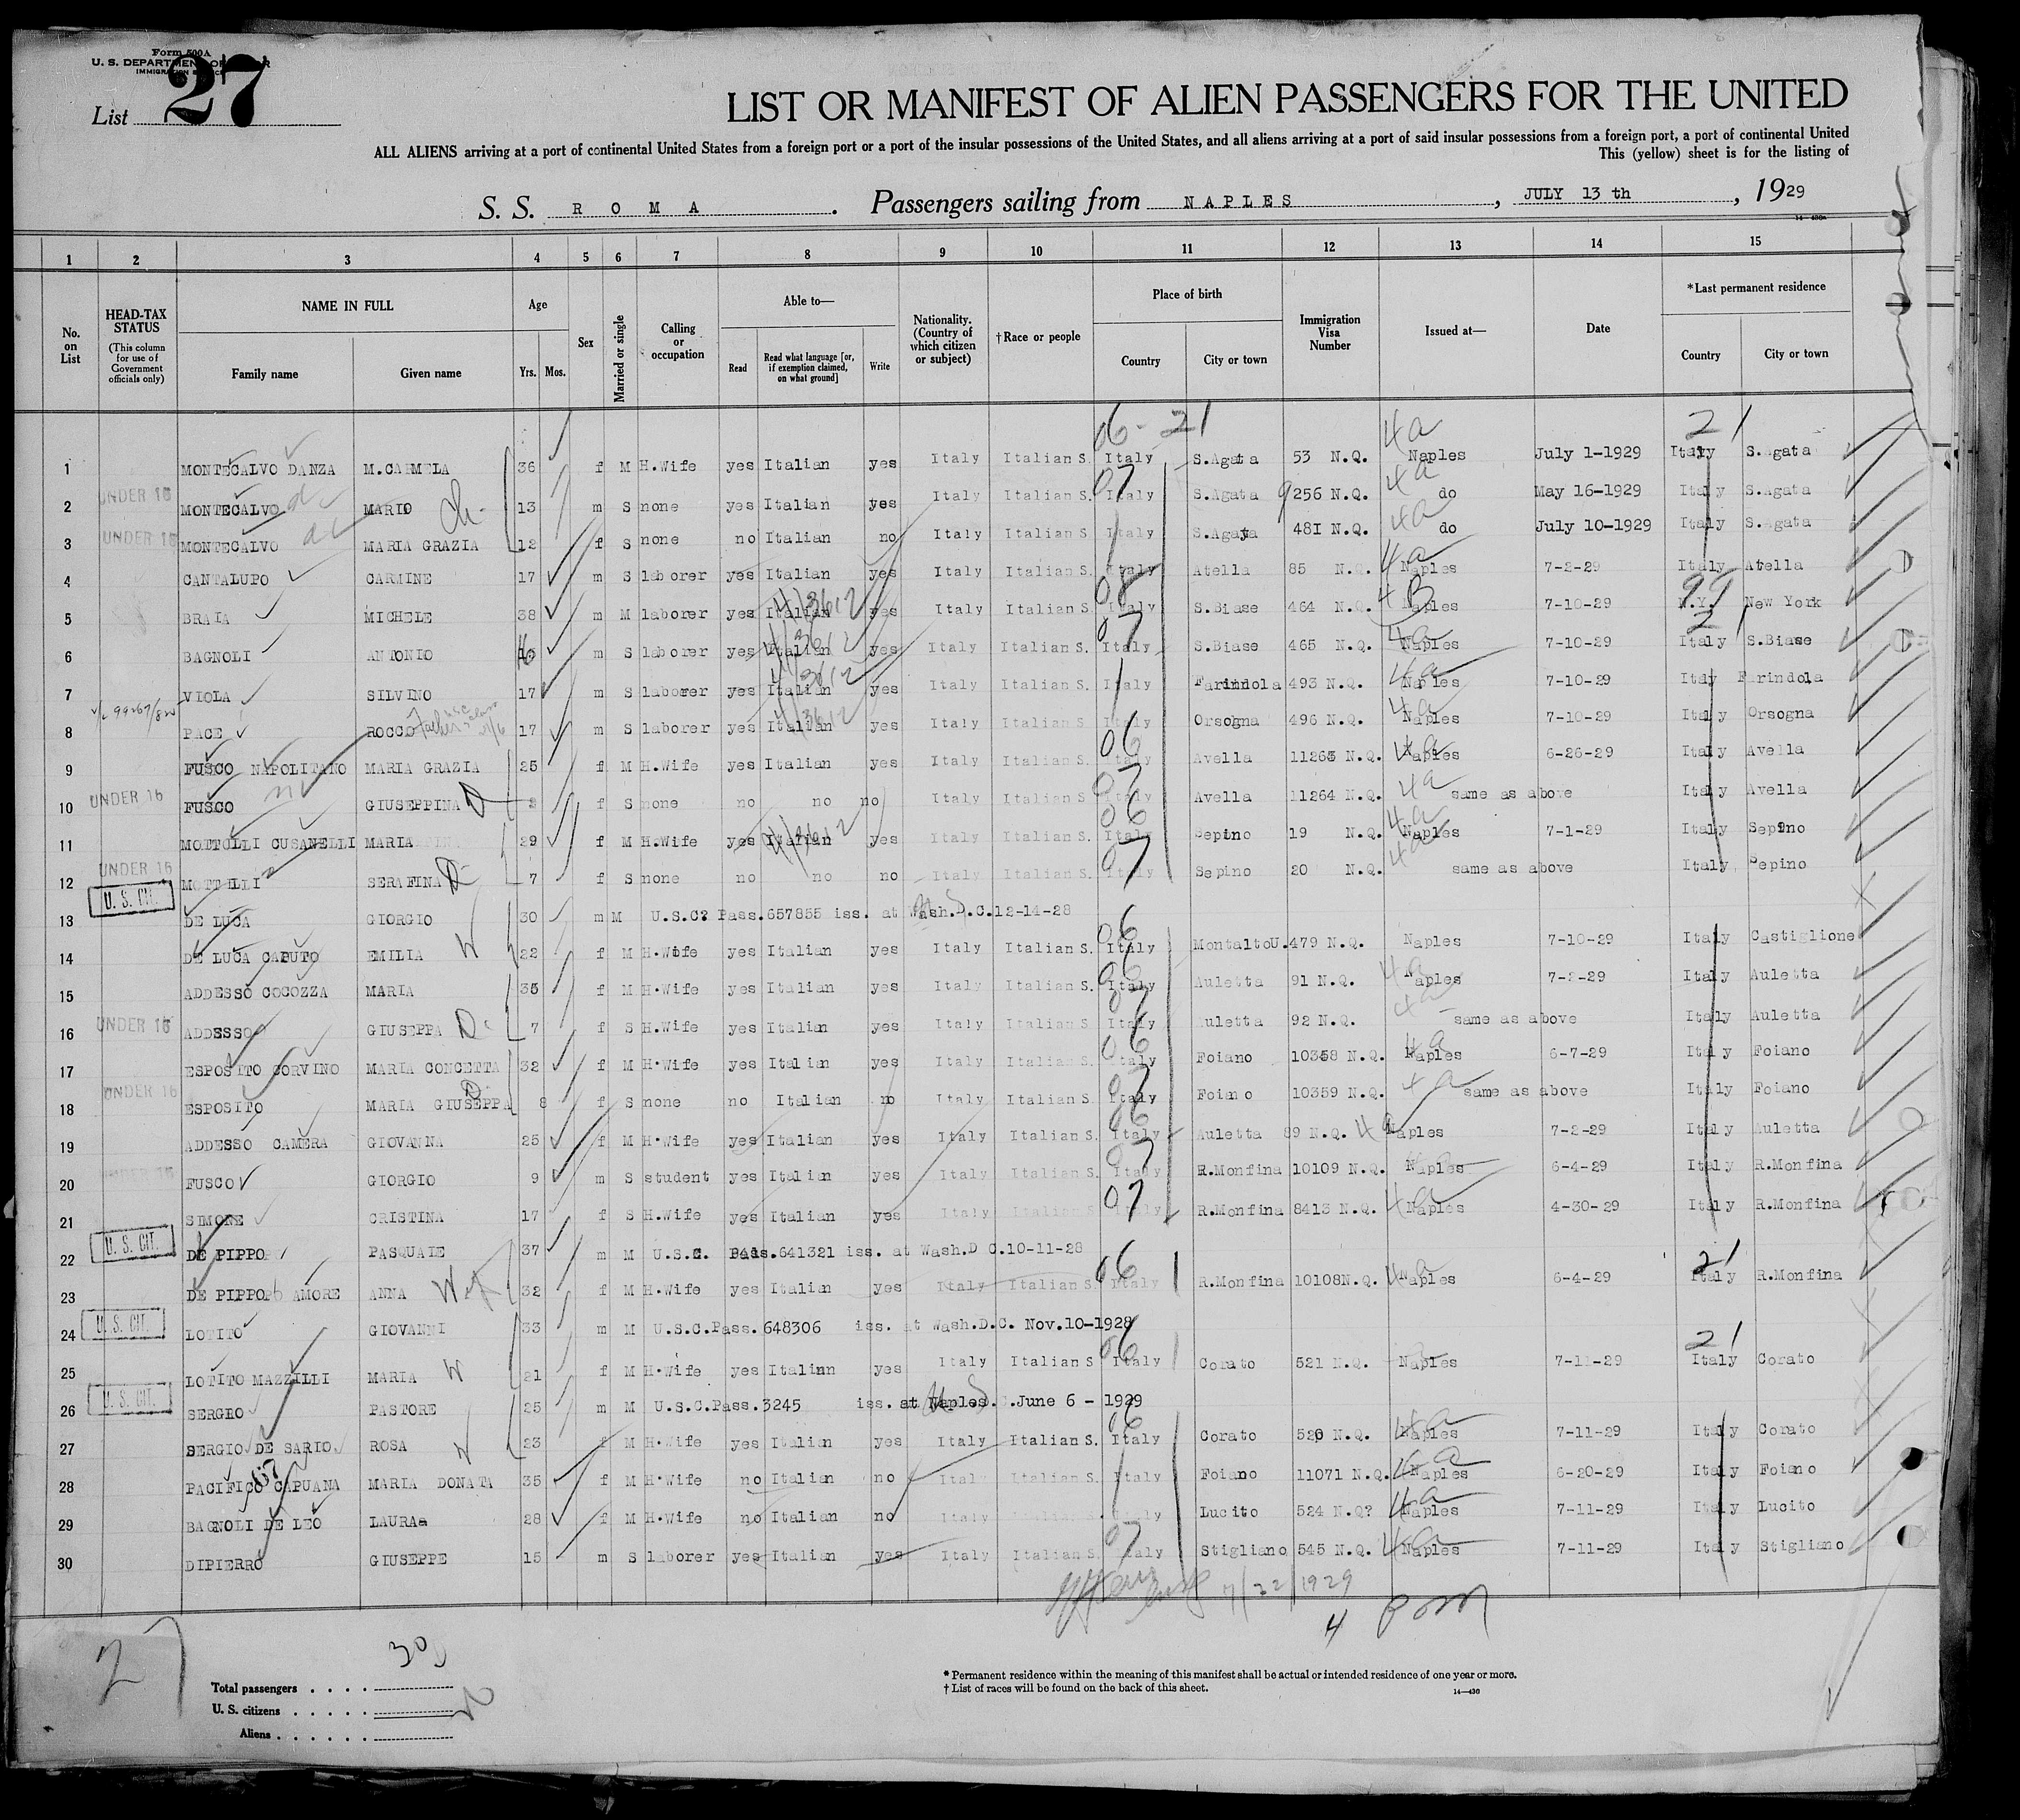 Form 500A
U. S. DEPARTMENT OF LABOR
IMMIGRATION SERVICE
List 27
LIST OR MANIFEST OF ALIEN PASSENGERS FOR THE UNITED
ALL ALIENS arriving at a port of continental United States from a foreign port or a port of the insular possessions of the United States, and all aliens arriving at a port of said insular possessions from a foreign port, a port of continental United
This (yellow) sheet is for the listing of
S. S. ROMA. Passengers sailing from NAPLES, JULY 13 th, 1929
14—430a
1 2 3 4 5 6 7 8 9 10 11 12 13 14 15
No. on List
HEAD-TAX STATUS (This column for use of Government officials only)
NAME IN FULL Family name Given name
Age Yrs. Mos.
Sex
Married or single
Calling or occupation
Able to— Read Read what language [or, if exemption claimed, on what ground] Write
Nationality. (Country of which citizen or subject)
†Race or people
Place of birth Country City or town
Immigration Visa Number
Issued at—
Date
*Last permanent residence Country City or town
06-21 4a 21
1 MONTECALVO DANZA M.CARMELA 36 f M H.Wife yes Italian yes Italy Italian S. Italy S.Agata 53 N.Q. Naples July 1-1929 Italy S.Agata
2 UNDER 16 MONTECALVO MARIO 13 m S none yes Italian yes Italy Italian S. Italy S.Agata 9256 N.Q. 4a do May 16-1929 Italy S.Agata
3 UNDER 16 MONTECALVO MARIA GRAZIA 12 f S none no Italian no Italy Italian S. Italy S.Agata 481 N.Q. 4a do July 10-1929 Italy S.Agata
4 CANTALUPO CARMINE 17 m S laborer yes Italian yes Italy Italian S. Italy Atella 85 N.Q. 4a Naples 7-2-29 Italy Atella
5 BRAIA MICHELE 38 m M laborer yes Italian yes Italy Italian S. Italy S.Biase 464 N.Q. 4B Naples 7-10-29 N.Y. New York
6 BAGNOLI ANTONIO 16 m S laborer yes Italian yes Italy Italian S. Italy S.Biase 465 N.Q. 4a Naples 7-10-29 Italy S.Biase
7 VIOLA SILVINO 17 m S laborer yes Italian yes Italy Italian S. Italy Farindola 493 N.Q. 4a Naples 7-10-29 Italy Farindola
8 PACE ROCCO 17 m S laborer yes Italian yes Italy Italian S. Italy Orsogna 496 N.Q. 4a Naples 7-10-29 Italy Orsogna
9 FUSCO NAPOLITANO MARIA GRAZIA 25 f M H.Wife yes Italian yes Italy Italian S. Italy Avella 11263 N.Q. 4a Naples 6-26-29 Italy Avella
10 UNDER 16 FUSCO GIUSEPPINA f S none no no no Italy Italian S Italy Avella 11264 N.Q. 4a same as above Italy Avella
11 MOTTOLLI CUSANELLI MARIA 29 f M H.Wife yes Italian yes Italy Italian S. Italy Sepino 19 N.Q. 4a Naples 7-1-29 Italy Sepino
12 UNDER 16 MOTTILLI SERAFINA 7 f S none no no no Italy Italian S. Italy Sepino 20 N.Q. 4a same as above Italy Sepino
13 U. S. CIT. DE LUCA GIORGIO 30 m M U.S.C? Pass.657855 iss. at Wash.D.C.12-14-28
14 DE LUCA CAPUTO EMILIA W 22 f M H.Wife yes Italian yes Italy Italian S. Italy MontaltoU. 479 N.Q. Naples 7-10-29 Italy Castiglione
15 ADDESSO COCOZZA MARIA 35 f M H.Wife yes Italian yes Italy Italian S. Italy Auletta 91 N.Q. 4a Naples 7-2-29 Italy Auletta
16 UNDER 16 ADDESSO GIUSEPPA D 7 f S H.Wife yes Italian yes Italy Italian S Italy Auletta 92 N.Q. same as above Italy Auletta
17 ESPOSITO CORVINO MARIA CONCETTA 32 f M H.Wife yes Italian yes Italy Italian S. Italy Foiano 10358 N.Q. 4a Naples 6-7-29 Italy Foiano
18 UNDER 16 ESPOSITO MARIA GIUSEPPA D 8 f S none no Italian no Italy Italian S. Italy Foiano 10359 N.Q. 4a same as above Italy Foiano
19 ADDESSO CAMERA GIOVANNA 25 f M H.Wife yes Italian yes Italy Italian S. Italy Auletta 89 N.Q. 4a Naples 7-2-29 Italy Auletta
20 UNDER 16 FUSCO GIORGIO 9 m S student yes Italian yes Italy Italian S. Italy R.Monfina 10109 N.Q. Naples 6-4-29 Italy R.Monfina
21 SIMONE CRISTINA 17 f S H.Wife yes Italian yes Italy Italian S. Italy R.Monfina 8413 N.Q. 4a Naples 4-30-29 Italy R.Monfina
22 U. S. CIT. DE PIPPO PASQUALE 37 m M U.S.C. Pass.641321 iss. at Wash.D C.10-11-28
23 DE PIPPO AMORE ANNA W 32 f M H.Wife yes Italian yes Italy Italian S. Italy R.Monfina 10108N.Q. 4a Naples 6-4-29 Italy R.Monfina
24 U. S. CIT. LOTITO GIOVANNI 33 m M U.S.C.Pass.648306 iss. at Wash.D.C. Nov.10-1928
25 LOTITO MAZZILLI MARIA W 21 f M H.Wife yes Italinn yes Italy Italian S Italy Corato 521 N.Q. Naples 7-11-29 Italy Corato
26 U. S. CIT. SERGIO PASTORE 25 m M U.S.C.Pass.3245 iss. at Naples. .June 6 - 1929
27 SERGIO DE SARIO. ROSA W 23 f M H.Wife yes Italian yes Italy Italian S. Italy Corato 520 N.Q. 4a Naples 7-11-29 Italy Corato
28 PACIFICO CAPUANA MARIA DONATA 35 f M H.Wife no Italian no Italy Italian S. Italy Foiano 11071 N.Q. 4a Naples 6-20-29 Italy Foiano
29 BAGNOLI DE LEO LAURA 28 f M H.Wife no Italian no Italy Italian S. Italy Lucito 524 N.Q? 4a Naples 7-11-29 Italy Lucito
30 DIPIERRO GIUSEPPE 15 m S laborer yes Italian yes Italy Italian S. Italy Stigliano 545 N.Q. 4a Naples 7-11-29 Italy Stigliano
7/22/1929
4
27
30
Total passengers
U. S. citizens
Aliens
* Permanent residence within the meaning of this manifest shall be actual or intended residence of one year or more.
† List of races will be found on the back of this sheet.
14—430